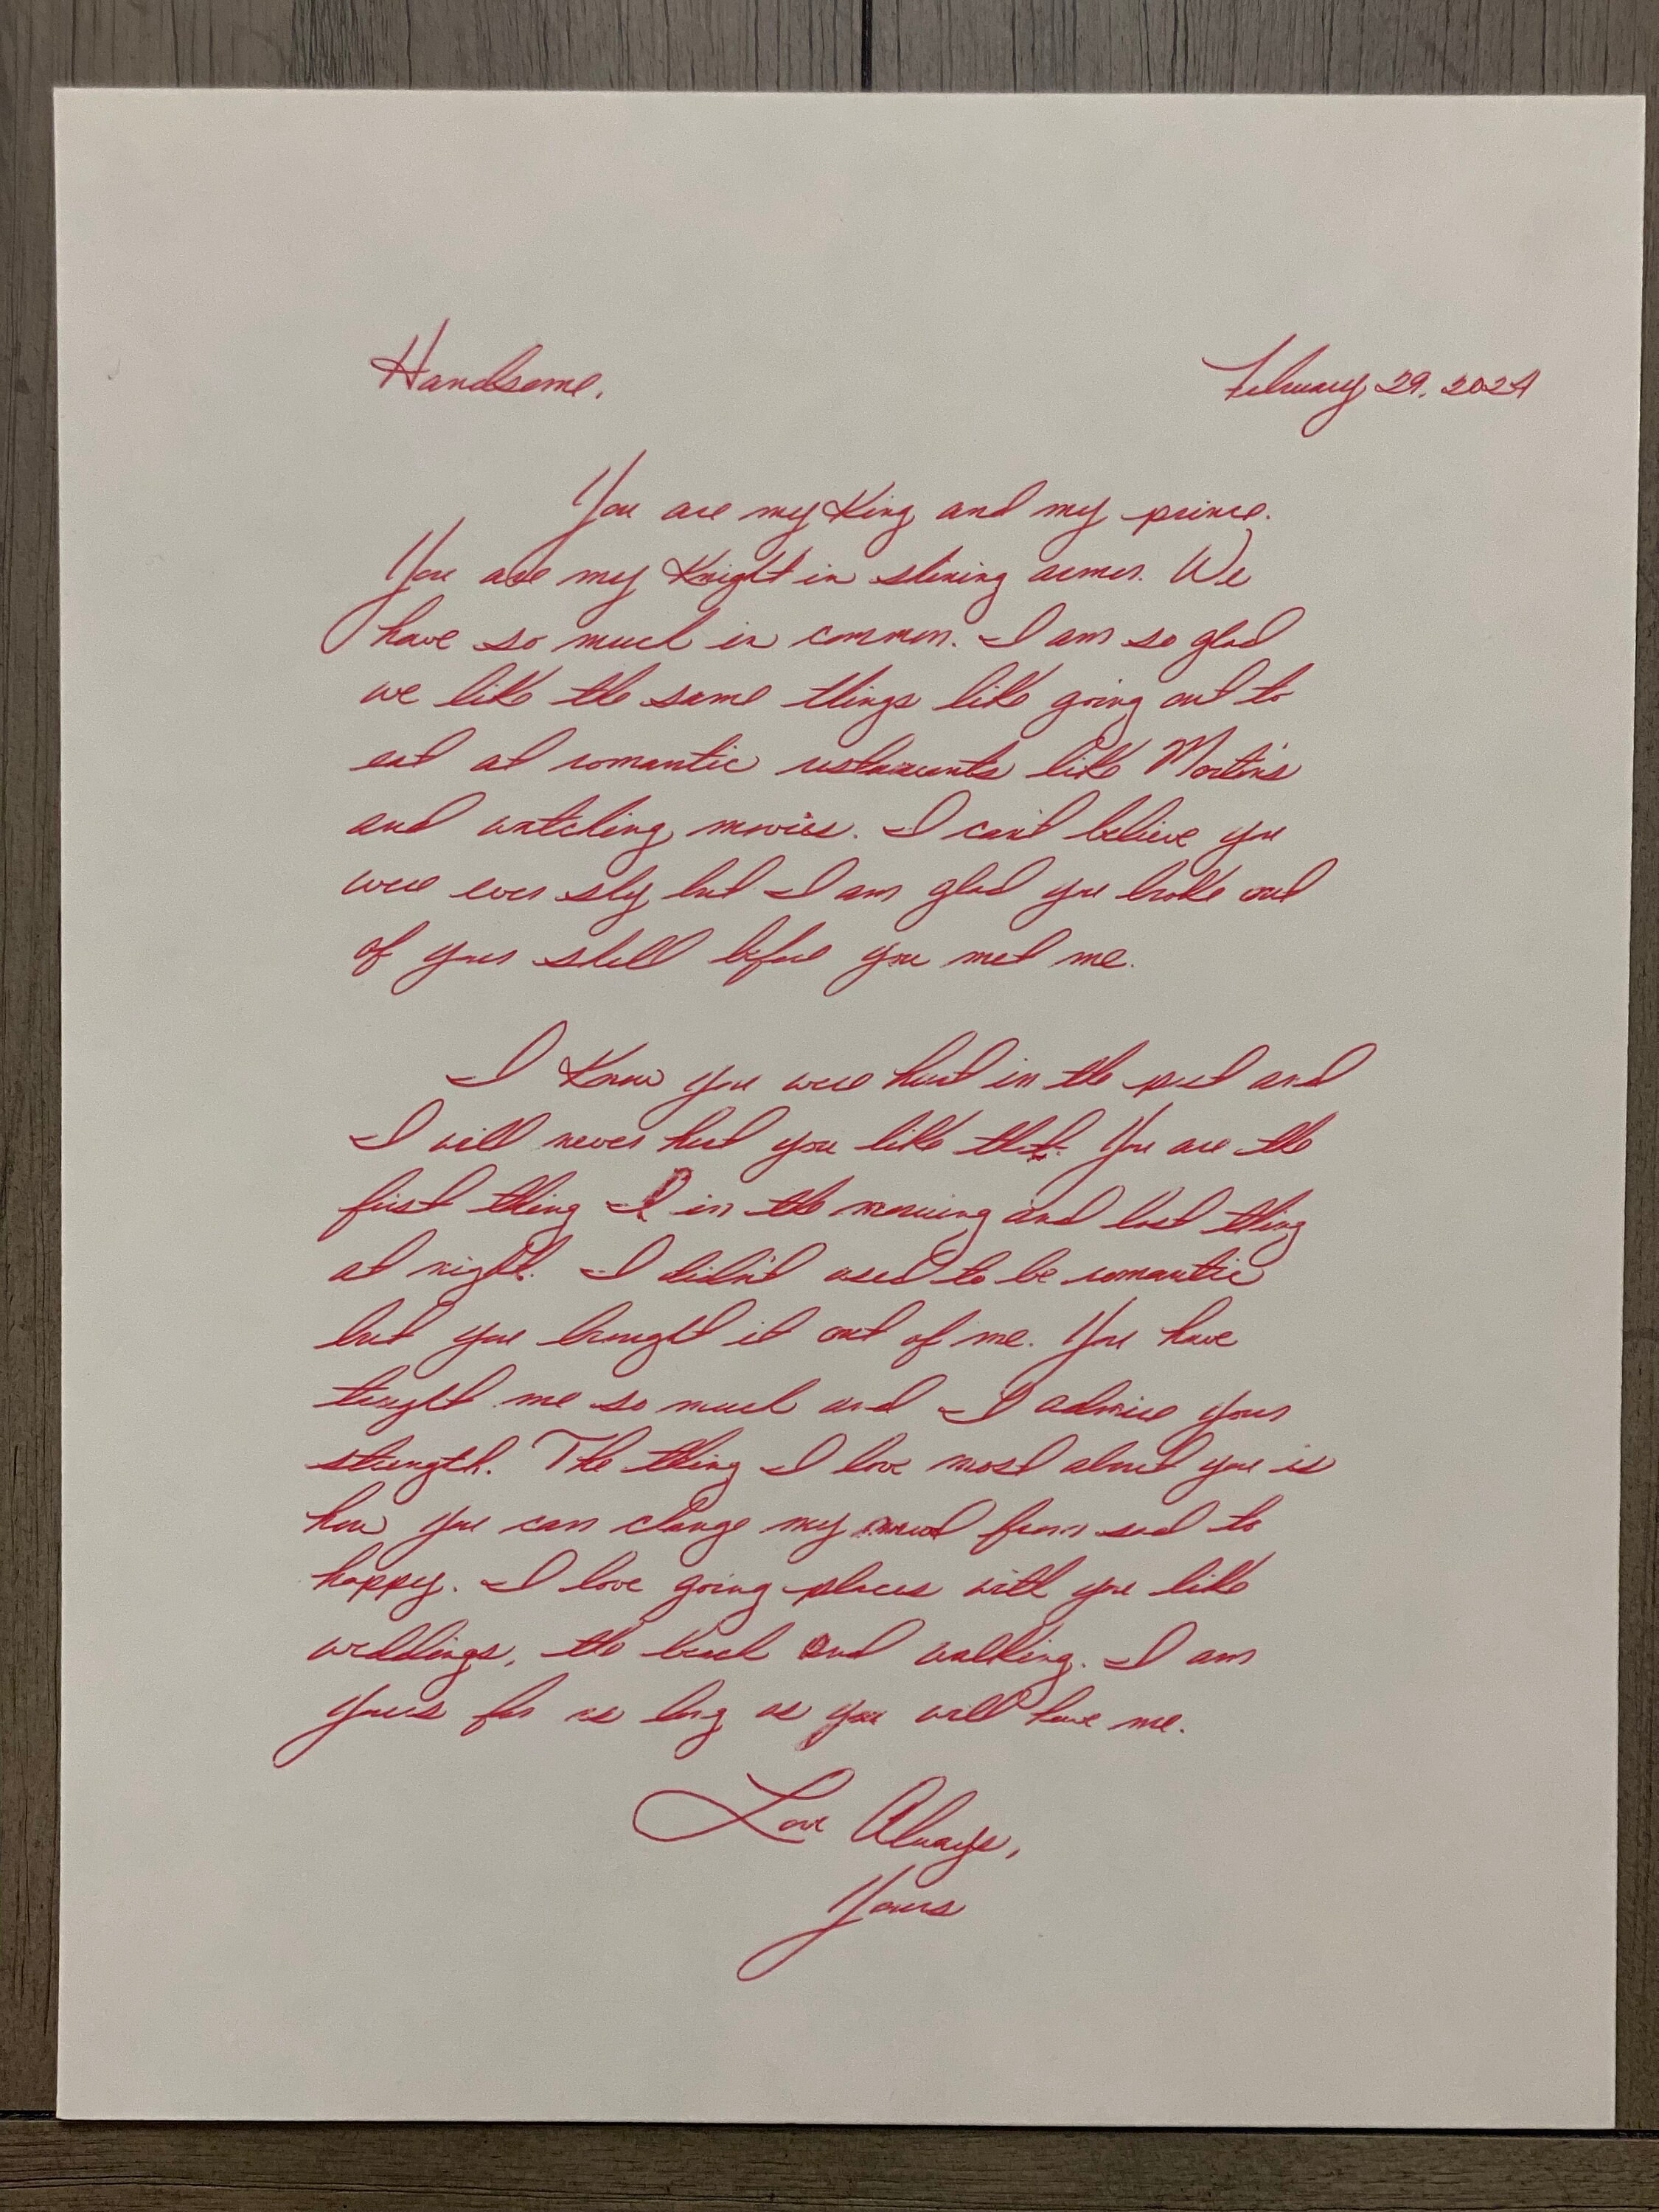 Handsome,
February 29, 2024
You are my King and my prince.
You are my Knight in shining armor. We
have so much in common. I am so glad
we like the same things like going out to
eat at romantic restaurants like Morton's
and watching movies. I can't believe you
were ever shy but I am glad you broke out
of your shell before you met me.
I Know you were hurt in the past and
I will never hurt you like that. You are the
first thing I in the morning and last thing
at night. I didn't used to be romantic
but you brought it out of me. You have
taught me so much and I admire your
strength. The thing I love most about you is
how you can change my mood from sad to
happy. I love going places with you like
weddings, the beach and walking. I am
yours for as long as you will have me.
Love Always,
Yours